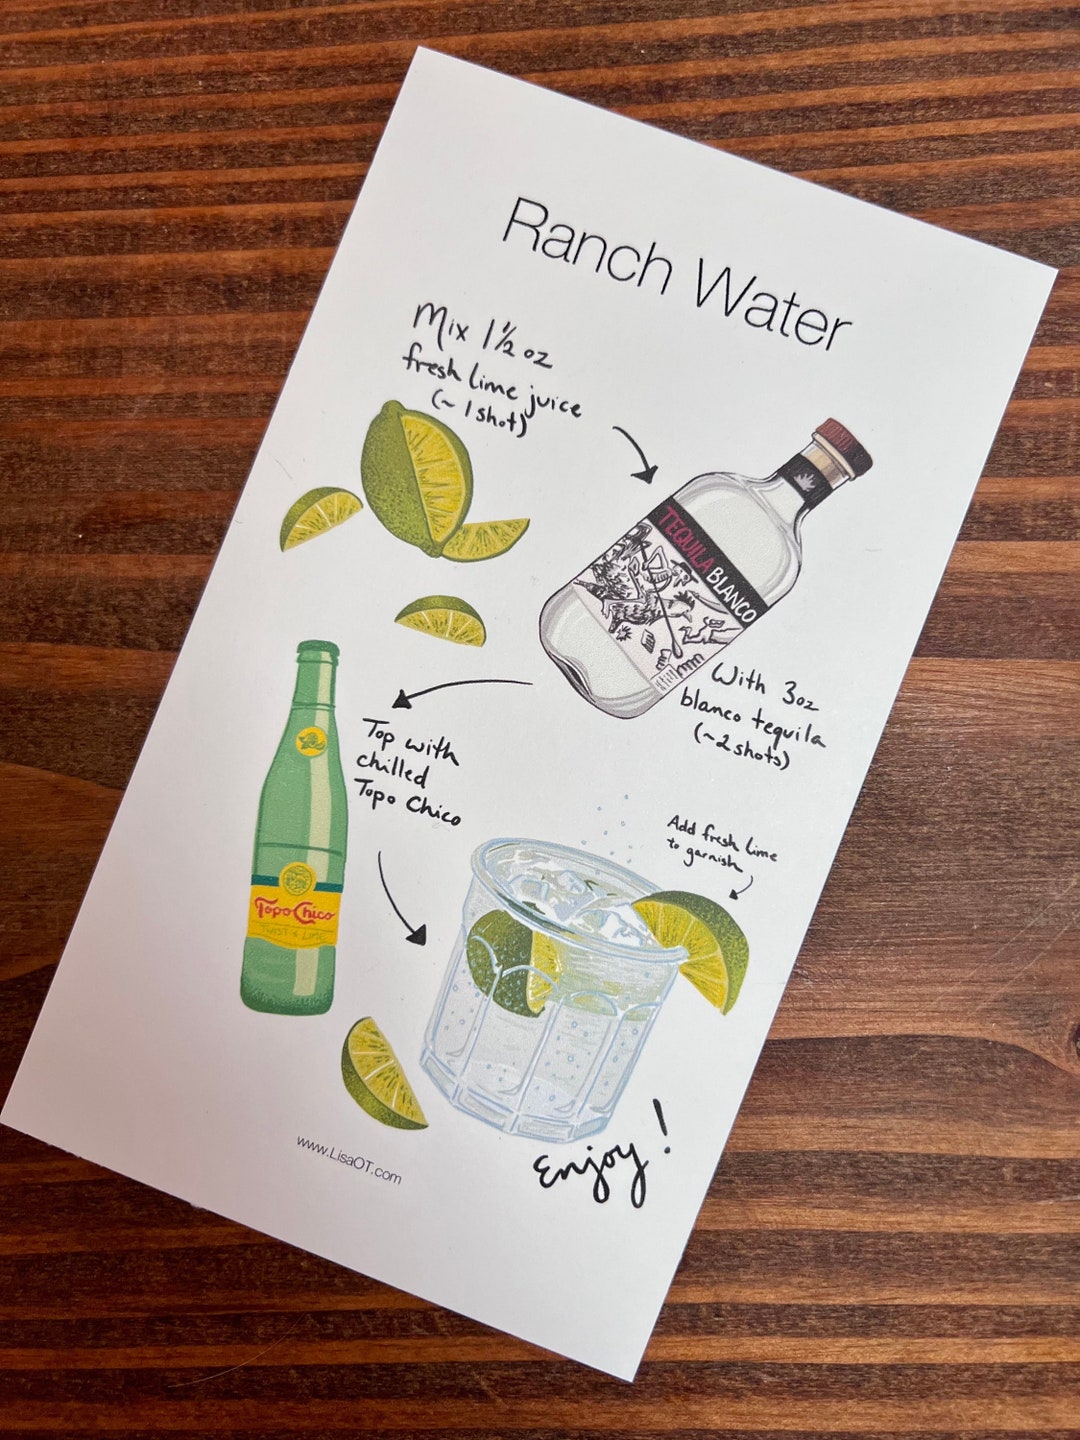 Ranch Water
Mix 1½ oz
fresh lime juice
(~ 1 shot)
TEQUILA BLANCO
With 3oz
blanco tequila
(~2 shots)
Top with
chilled
Topo Chico
Topo Chico
TWIST OF LIME
Add fresh lime
to garnish
Enjoy!
www.LisaOT.com